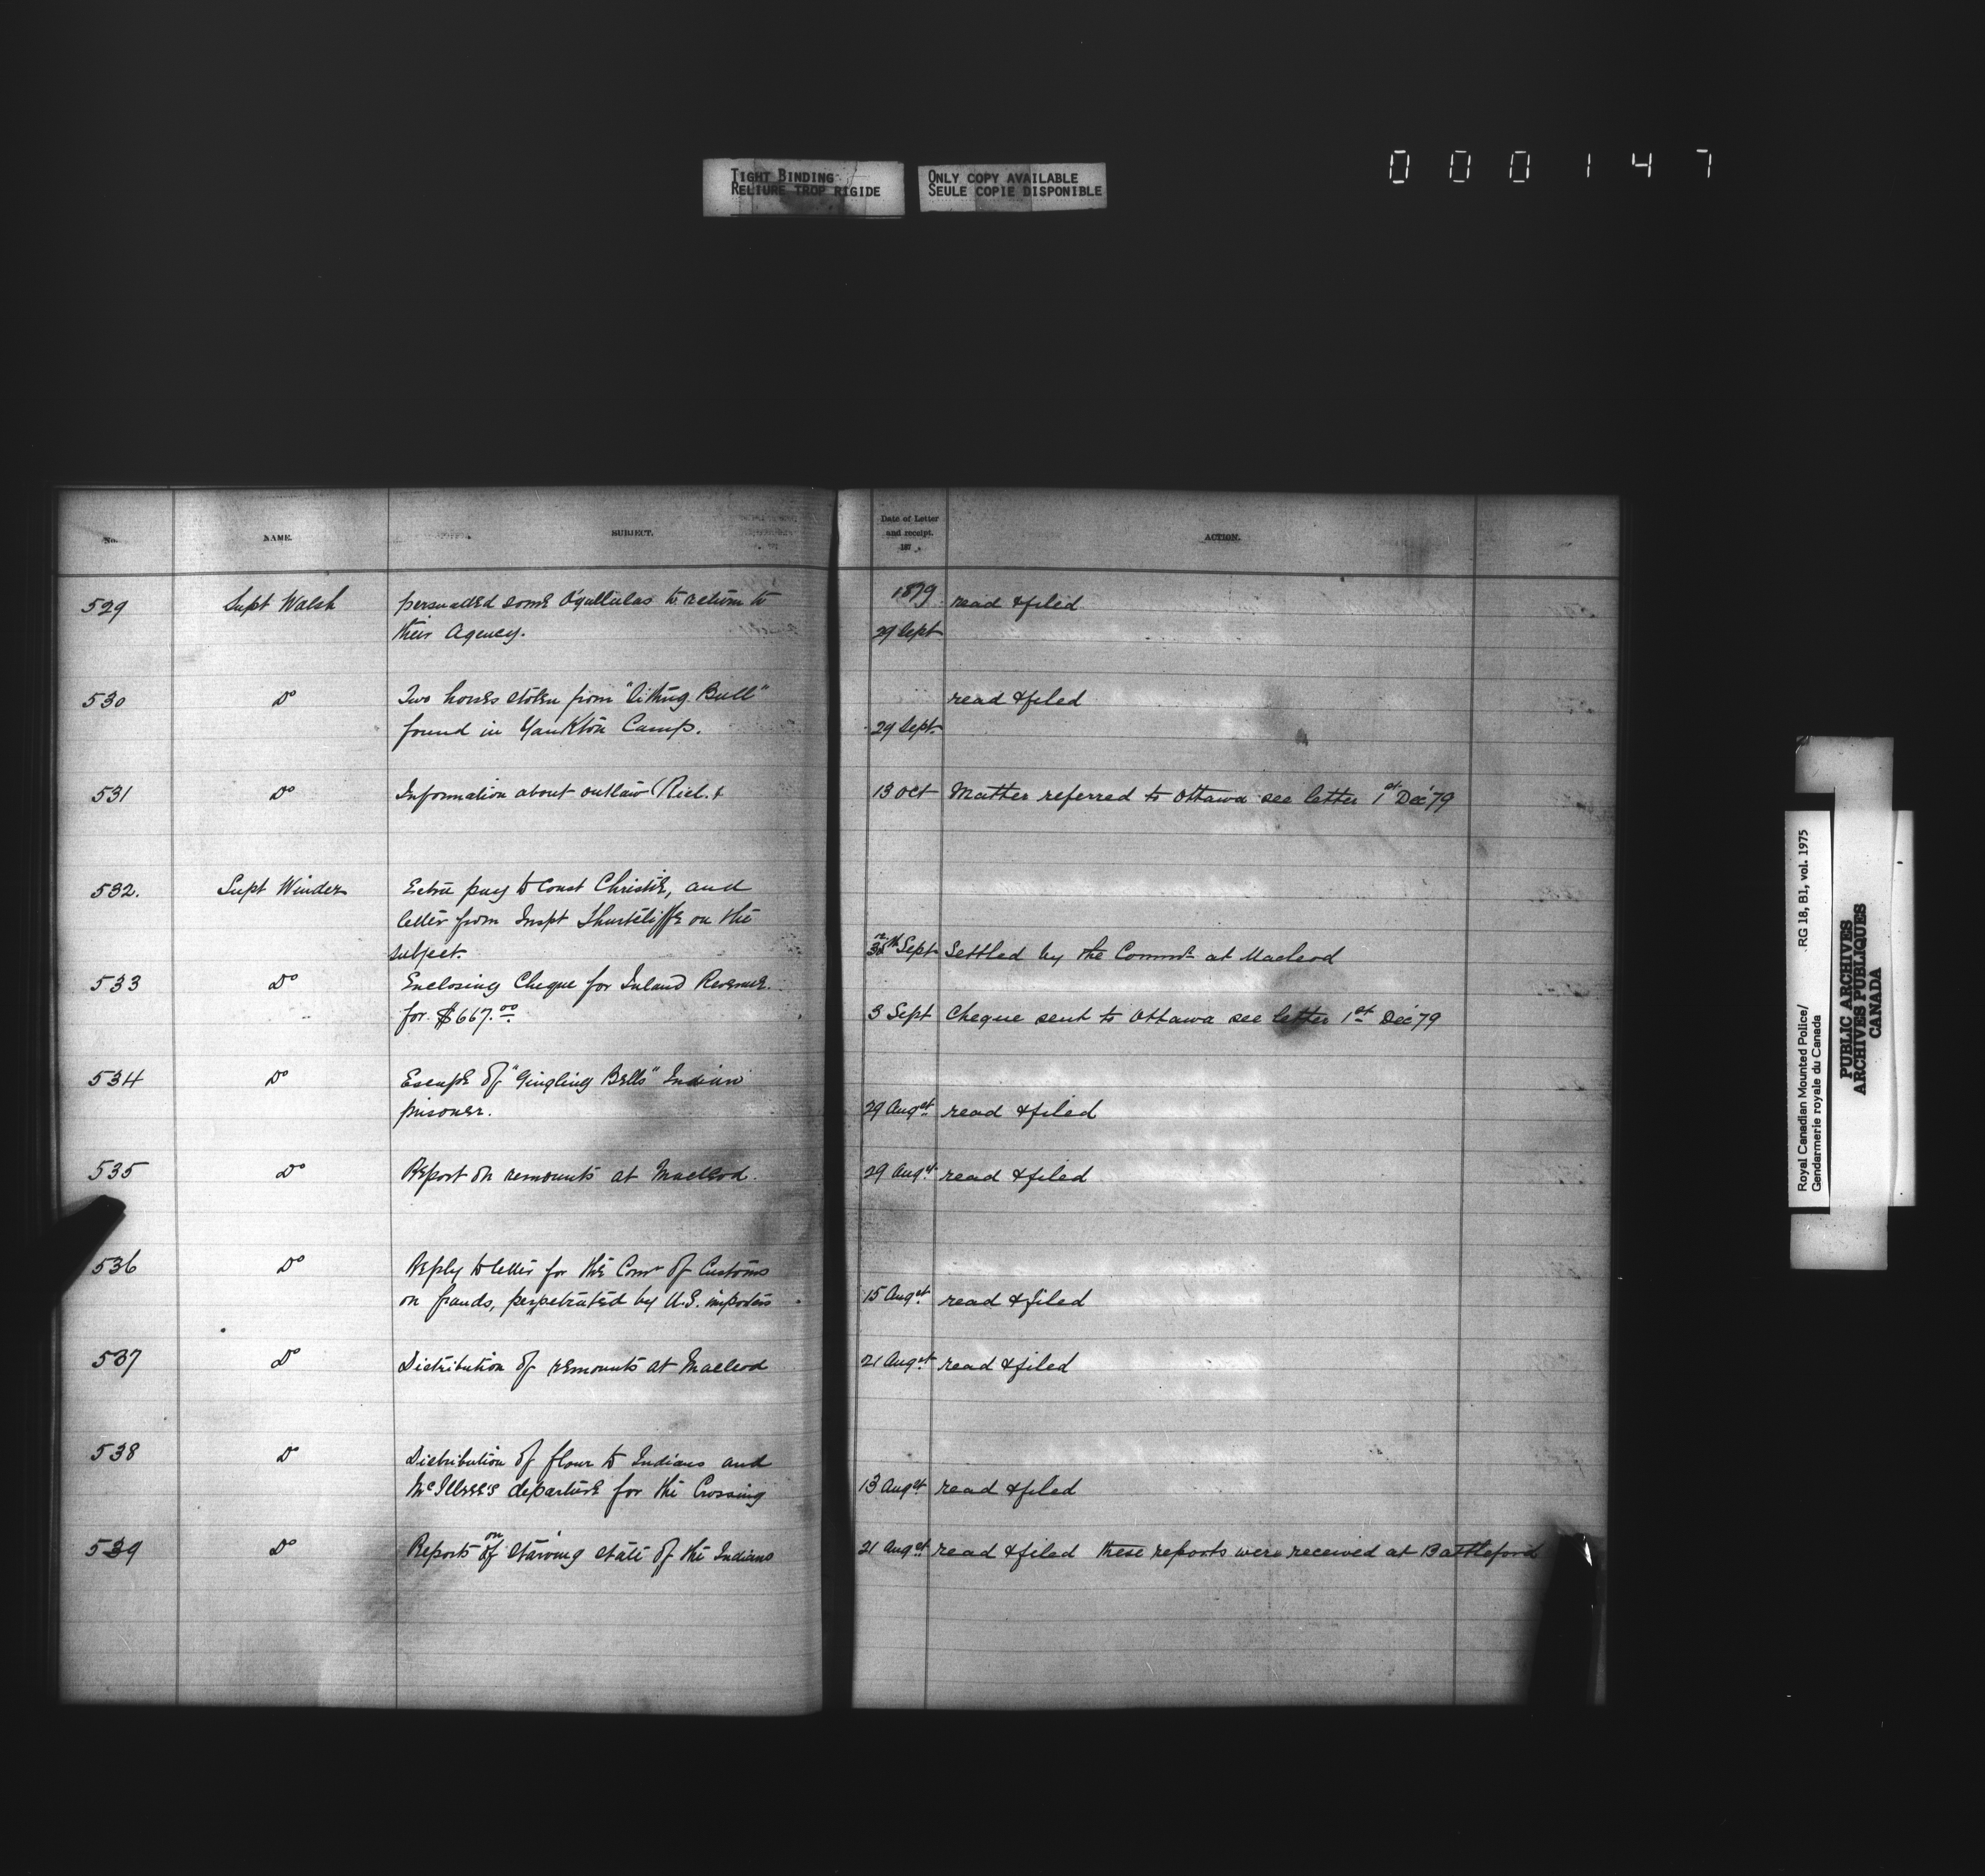 TIGHT BINDING
RELIURE TROP RIGIDE
ONLY COPY AVAILABLE
SEULE COPIE DISPONIBLE
000147
No. NAME. SUBJECT. Date of Letter and receipt. 187 ACTION.
529 Supt Walsh persuaded some Ogallalas to return to 1879 read & filed
their Agency. 29 Sept
530 Do Two horses stolen from "Sitting Bull" read & filed
found in Yankton Camp. 29 Sept.
531 Do Information about outlaw (Riel. 13 Oct Matter referred to Ottawa see letter 1st Dec '79
532. Supt Winder Extra pay to Const Christie, and
letter from Inspt Shurtcliffe on the
subject. Sept Settled by the Commr at Macleod
533 Do Enclosing Cheque for Inland Revenue
for $667.00 3 Sept Cheque sent to Ottawa see letter 1st Dec '79
534 Do Escape of "Gingling Bells" Indian
prisoner. 29 Augst read & filed
535 Do Report on remounts at Macleod. 29 Augst read & filed
536 Do Reply to letter for the Comr of Customs
on frauds, perpetrated by U.S. importers 15 Augst read & filed
537 Do Distribution of remounts at Macleod 21 Augst read & filed
538 Do Distribution of flour to Indians and
McIllree's departure for the Crossing 13 Augst read & filed
539 Do Reports on of starving state of the Indians 21 Augst read & filed these reports were received at Battleford
Royal Canadian Mounted Police/ RG 18, B1, vol. 1975
Gendarmerie royale du Canada
PUBLIC ARCHIVES
ARCHIVES PUBLIQUES
CANADA